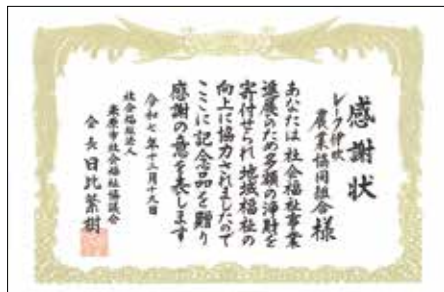 感謝状
レーク伊吹
農業協同組合様
あなたは社会福祉事業
進展のため多額の浄財を
寄付せられ地域福祉の
向上に協力されましたので
ここに記念品を贈り
感謝の意を表します
令和七年十二月十九日
社会福祉法人
米原市社会福祉協議会
会長 日比繁樹